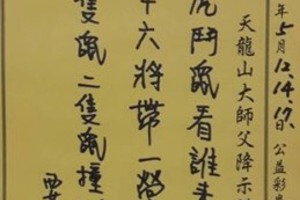 年5月12.14.17.日公益彩
天龍山大師父降示
虎鬥鼠看誰
十六將帶一勞
隻鼠二隻鼠撞
西